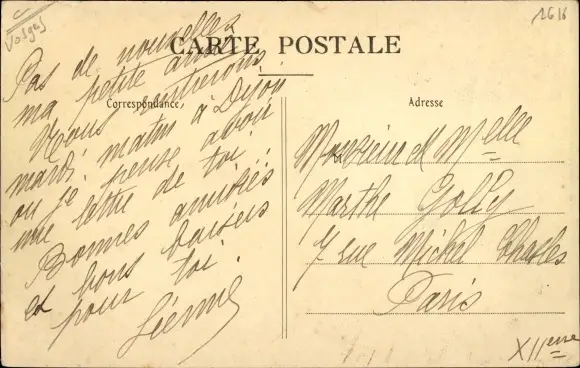 Vosges
1616
CARTE POSTALE
Correspondance
Adresse
Pas de nouvelles
ma petite amie
Nous rentrerons
mardi matin à Dijon
ou je pense avoir
une lettre de toi.
Bonnes amitiés
et bons baisers
pour toi.
Monsieur et Melle
Marthe Golly
7 rue Michel Chasles
Paris
XIIeme